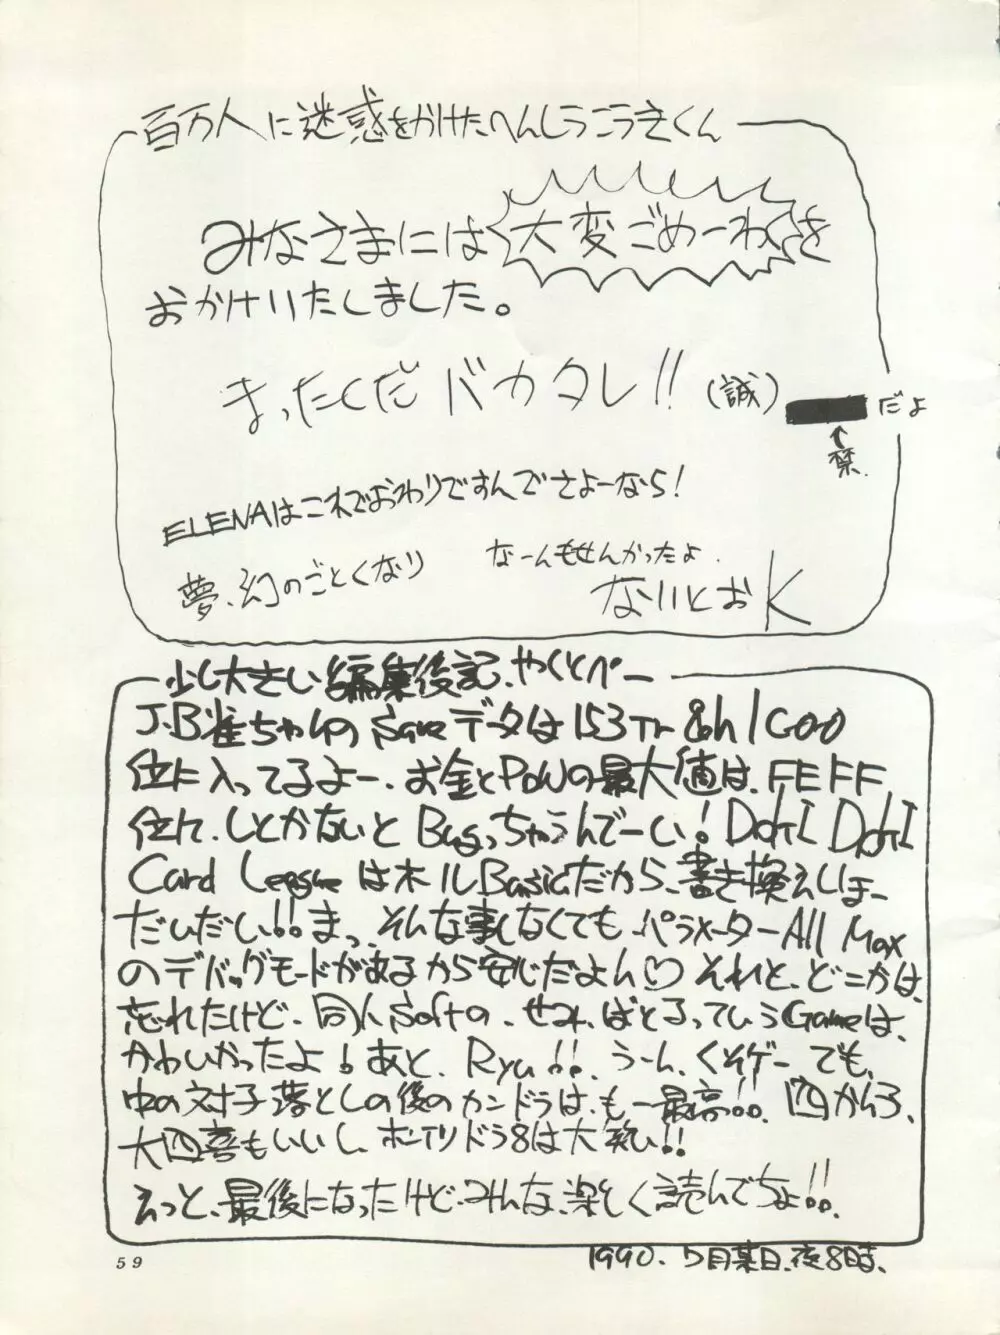 百万人に迷惑をかけたへんしうこうきくん
みなさまには大変ごめーわくを
おかけいたしました。
まったくだバカタレ!!(誠)
だよ
↑
禁
ELENAはこれでおわりですんでさよーなら!
夢、幻のごとくなり
なーんもせんかったよ.
ないとおK
少し大きい編集後記、やくとぺー
J.B雀ちゃんのSaveデータは153Tr &h1C00
位に入ってるよー、お金とPowの最大値は、FEFF
位に、しとかないとBugっちゃうんでーい! DokI DokI
Card LeagueはオールBasicだから、書き換えしほー
だいだい!!まっ、そんな事しなくてもパラメーターAll Max
のデバッグモードがあるから安心だよん♡それと、どこかは、
忘れたけど、同人Softの、せみ、ばとるっていうGameは、
かわいかったよ!あと、Ryu!!、うーん、くそゲー でも、
中の対子落としの後のカンドラは、も一最高!!、四から3、
大四喜もいいし、ホンイツドラ8は大笑い!!
えっと、最後になったけど、みんな、楽しく読んでちょ!!
1990. 7月某日、夜8時、
59